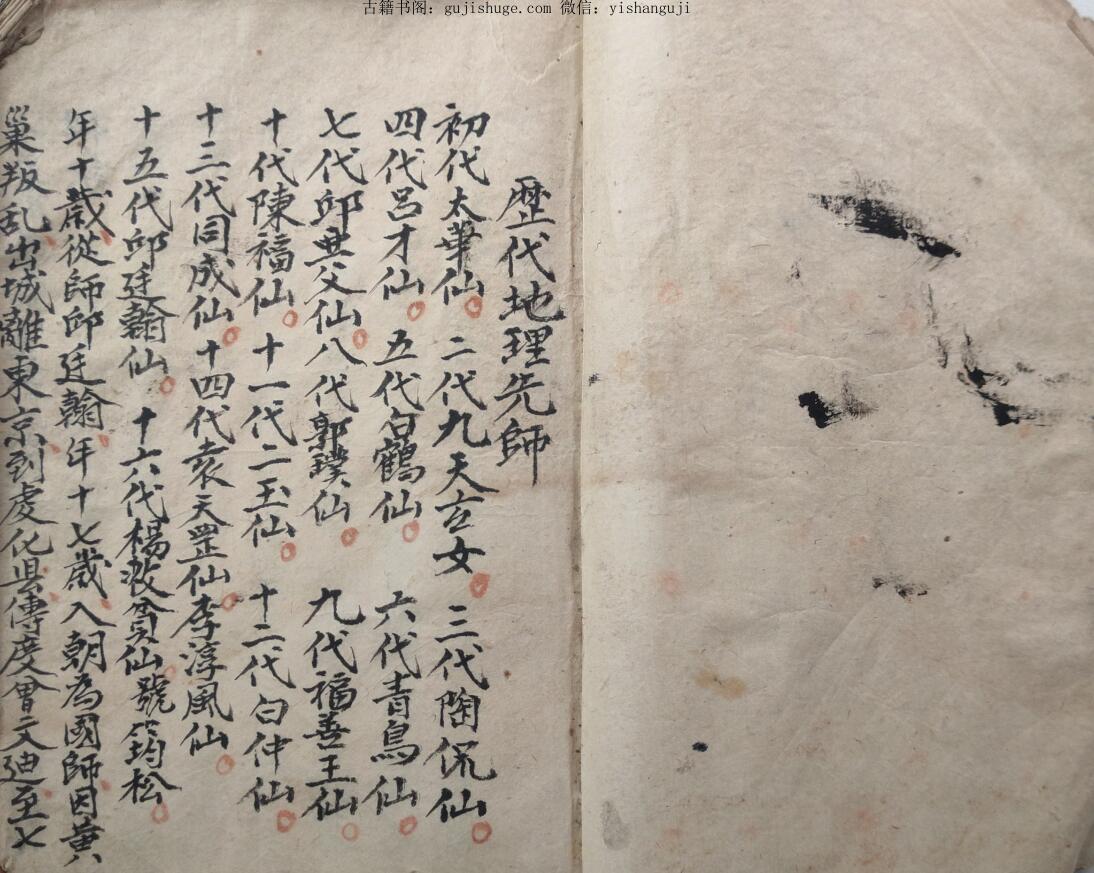 古籍书阁：gujishuge.com 微信：yishanguji
歷代地理先師
初代太華仙 二代九天玄女 三代陶侃仙
四代呂才仙 五代白鶴仙 六代青鳥仙
七代邱興父仙八代郭璞仙 九代福善王仙
十代陳福仙 十一代二玉仙 十二代白仲仙
十三代同成仙十四代袁天罡仙李淳風仙
十五代邱廷翰仙 十六代楊救貧仙號筠松
年十歲從師邱廷翰年十七歲入朝為國師因黃
巢叛乱出城離東京到虔化县傳度曾文迪至七